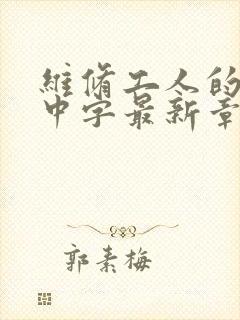 維脩工人的
中字最新章
郭素梅